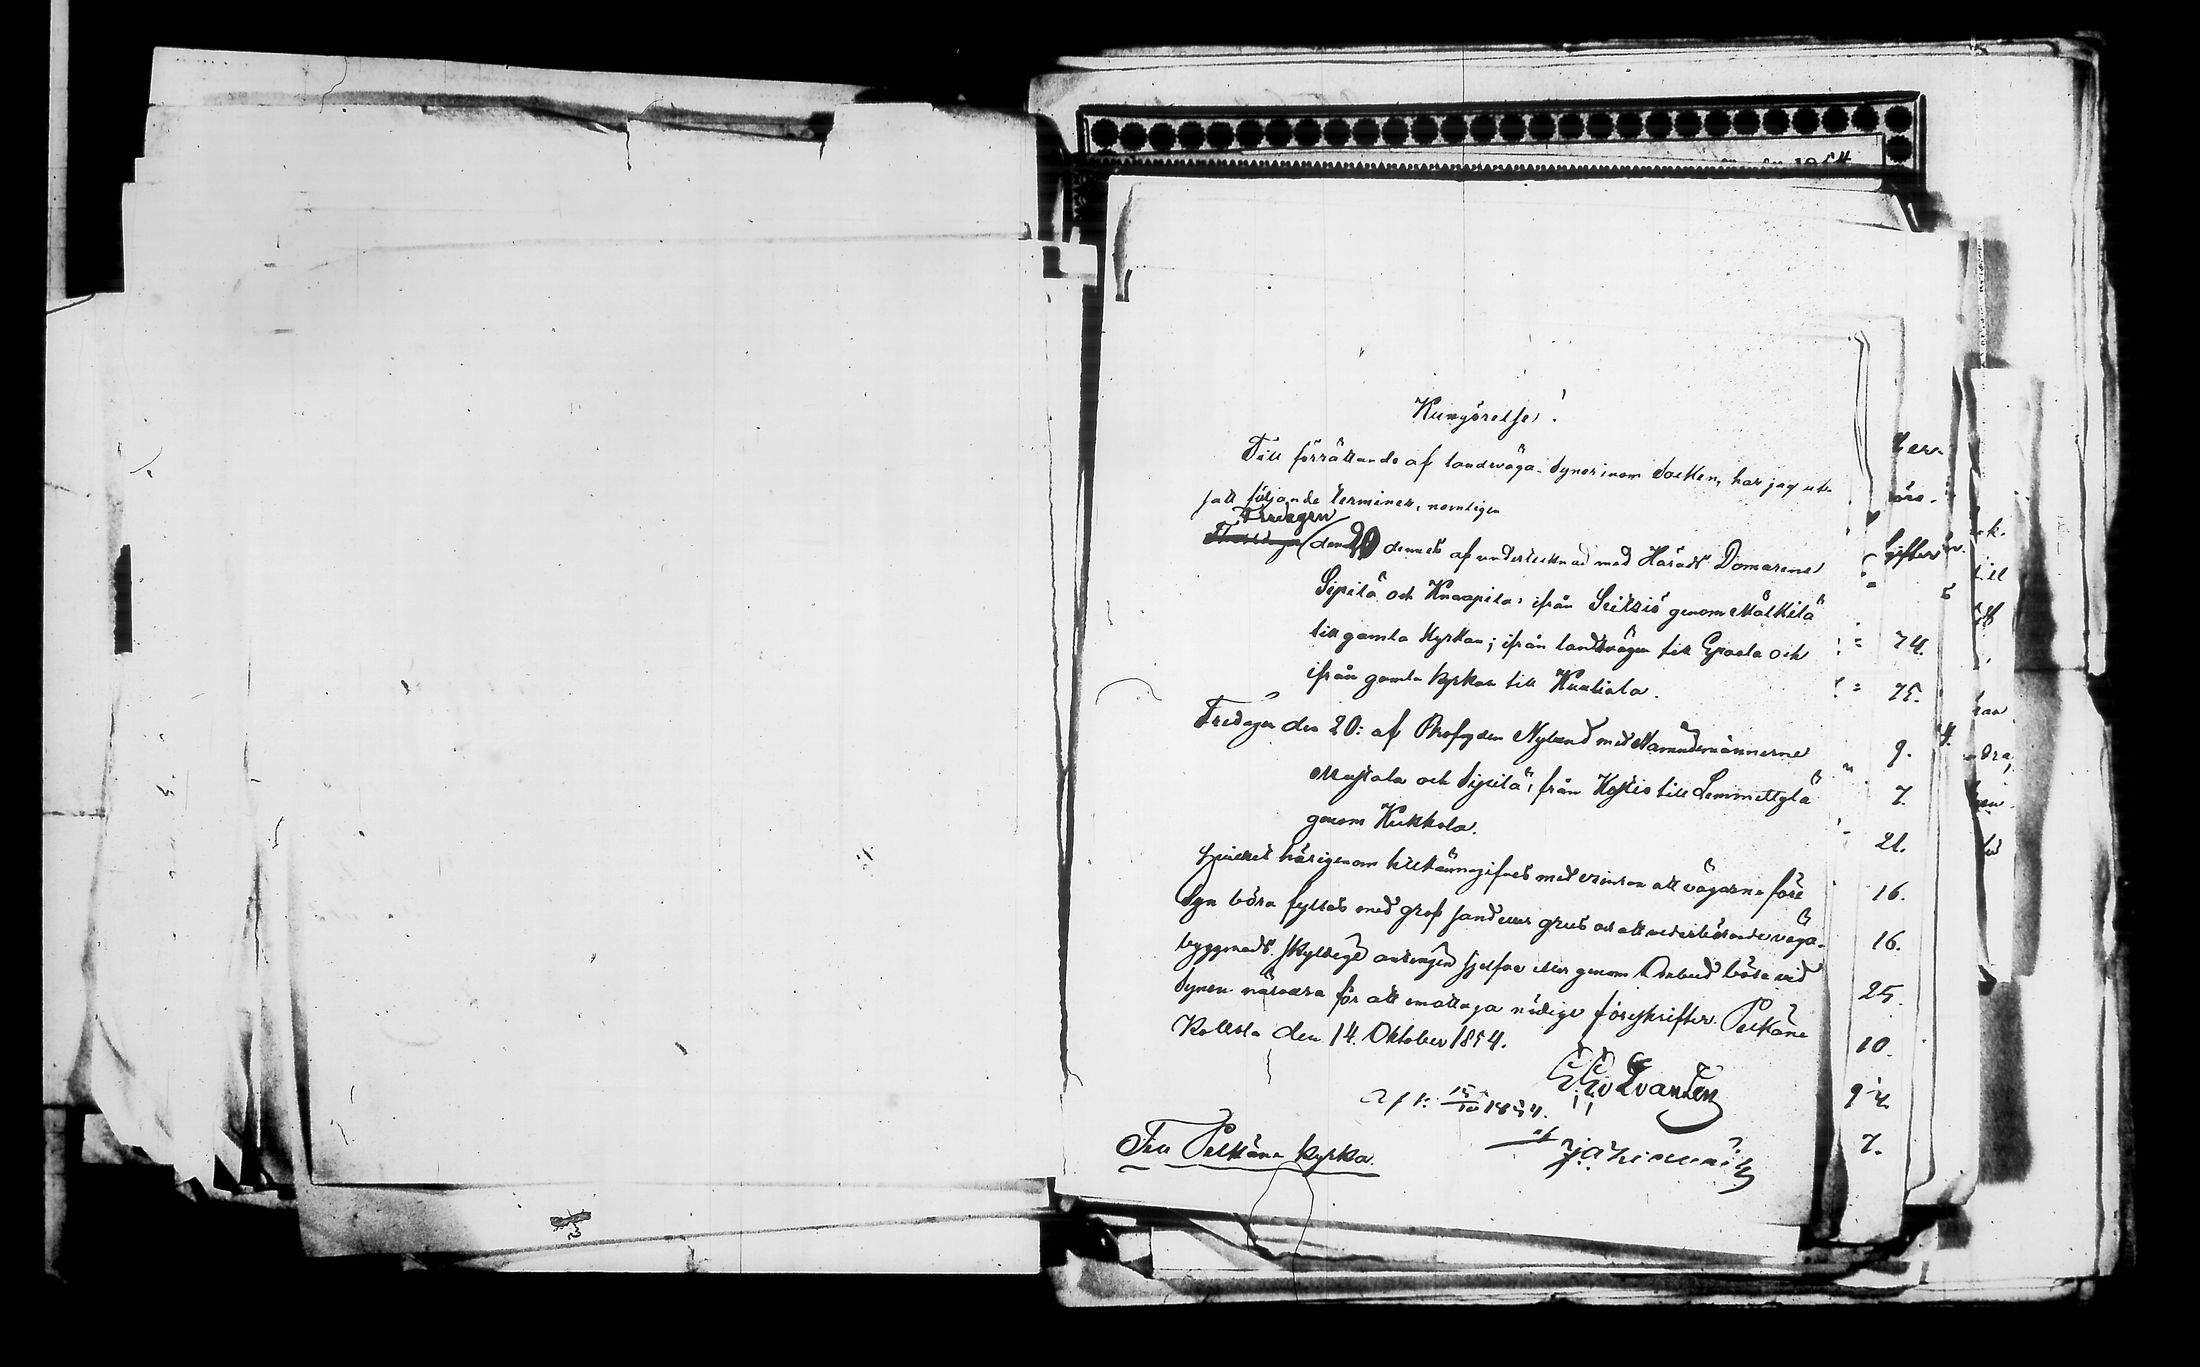 Kungörelse!
Till förrättande af landsväga-Syner inom Socken, har jag ut-
satt följande terminer, nemligen
Fredagen
den 20 dennes af undertecknad med Härads Domarene
Sipilä och Knaapila, ifrån Seitsis genom Mälkilä
till gamla Kyrkan; ifrån landsvägen till Epaala och
ifrån gamla kyrkan till Kuuliala.
Fredagen den 20: af Profogden Nylund med Nämndemännerne
Mustala och Sipilä, från Kostis till Lemmettylä
genom Kukkola.
hvilket härigenom tillkännagifves med erinran att vägarne före
Syn böra fyllas med grof sand eller grus och att vederbörande väga-
byggnads skyldige antingen sjelfve eller genom Ombud böra vid
Synen närvara för att emottaga nödige föreskrifter. Pelkäne
Kollola den 14. Oktober 1854.
Lvanden
Afk: 15/10 1854.
af
Till Pelkäne kyrka.
ber-
gifter
74.
75.
9.
7.
21.
16.
16.
25.
10.
9
7.